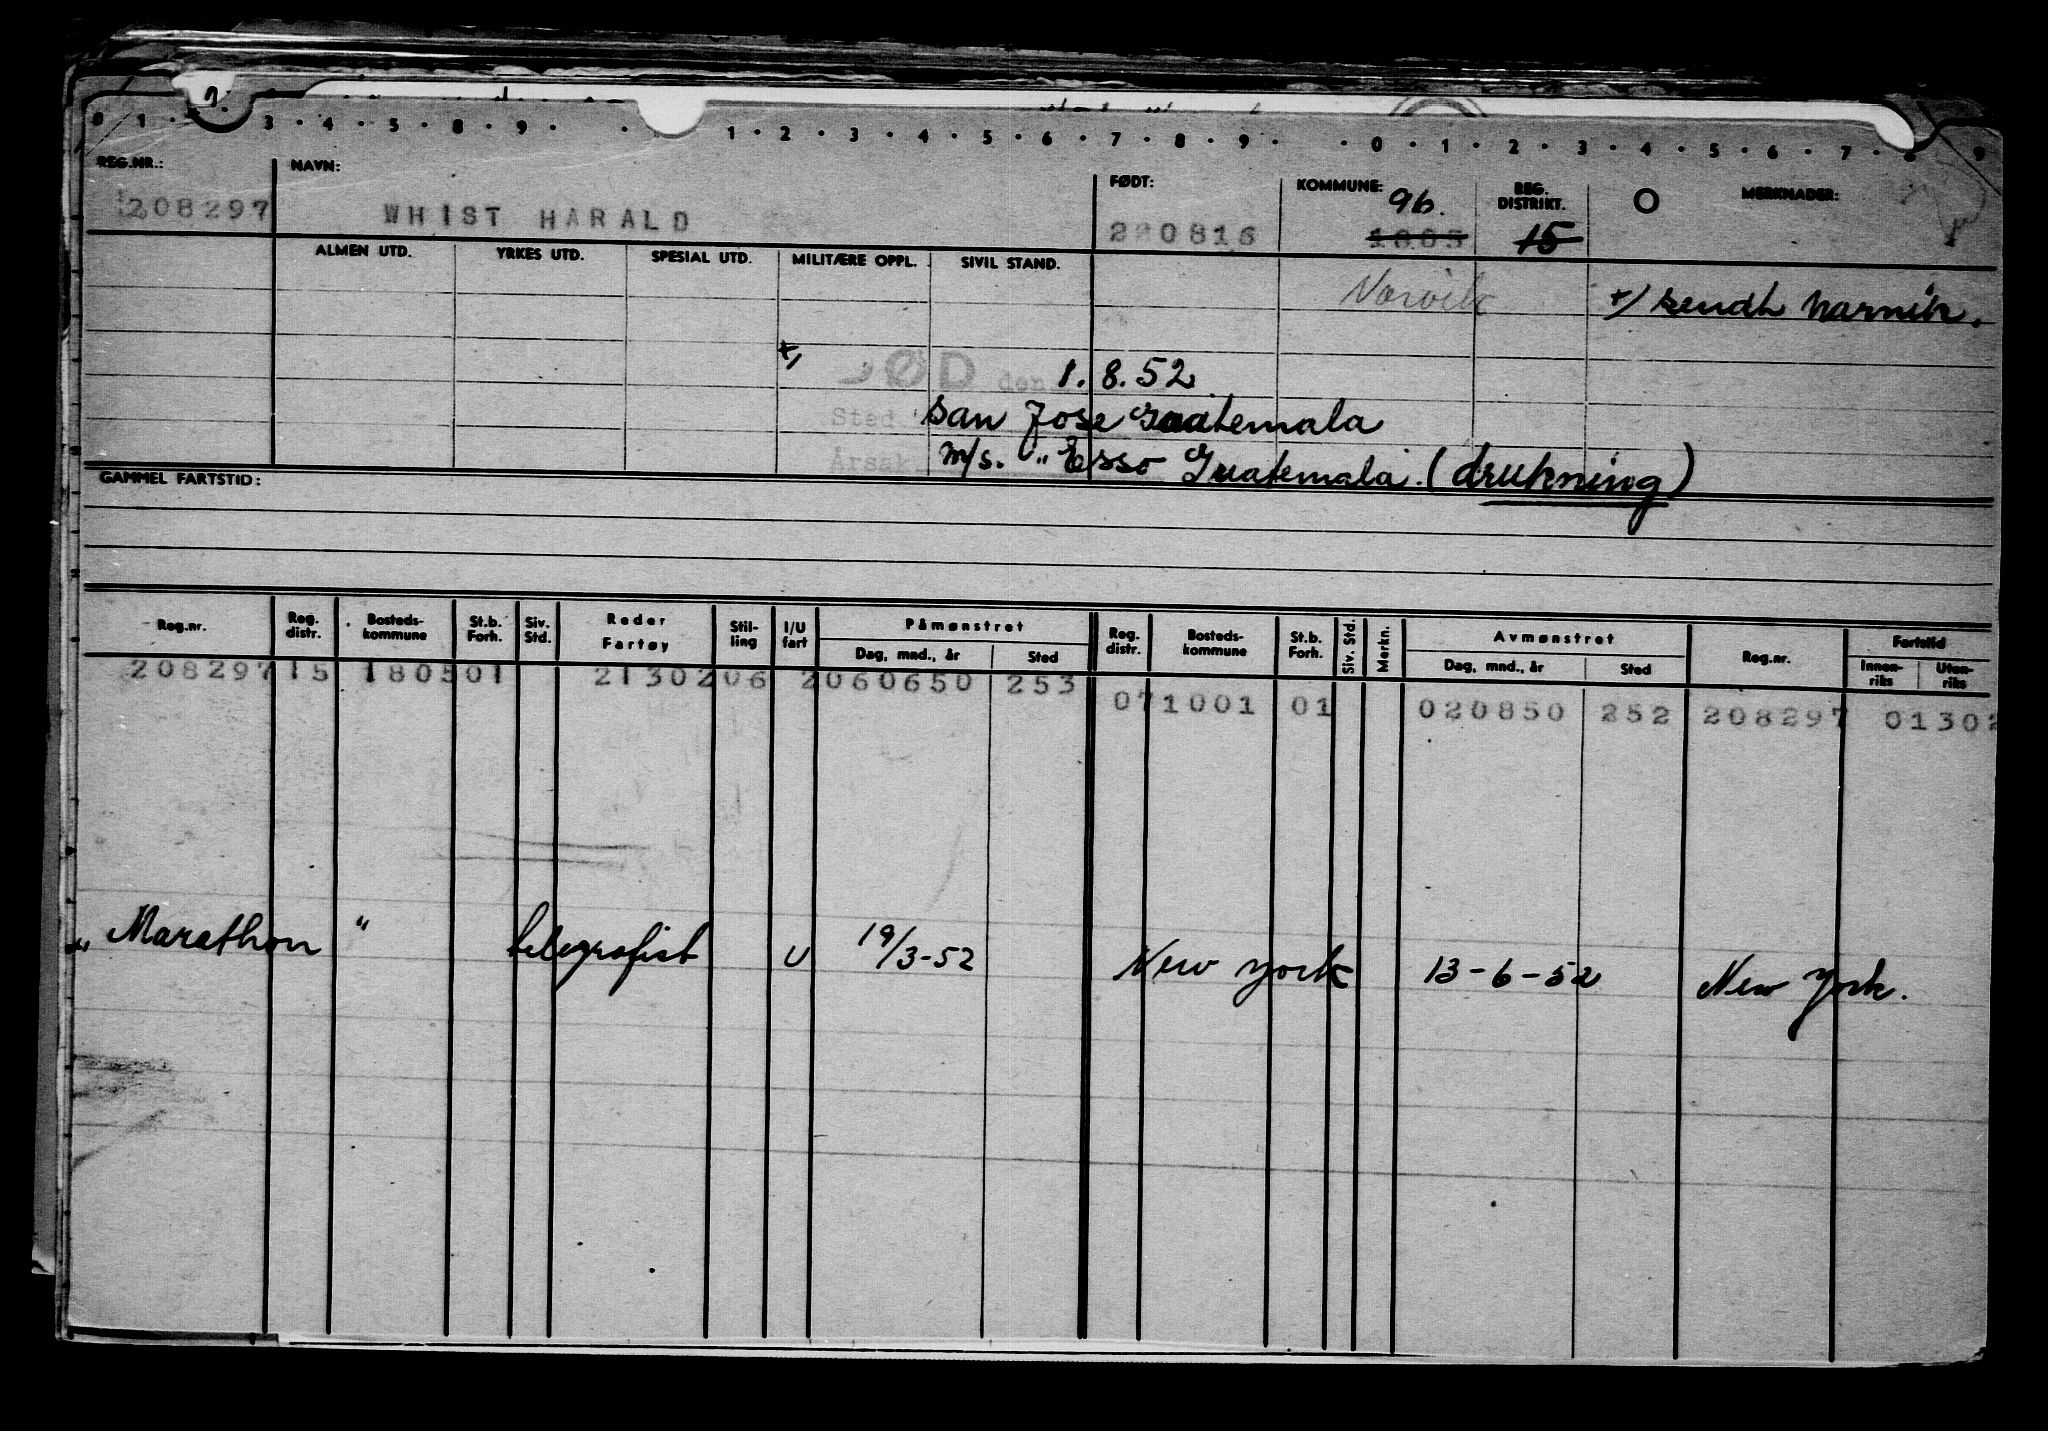 0 1 · 3 · 4 · 5 · 8 · 9 · · 1 · 2 · 3 · 4 · 5 · 6 · 7 · 8 · 9 · · 0 · 1 · 2 · 3 · 4 · 5 · 6 · 7 · 8 · 9
REG.NR.: NAVN: FØDT: KOMMUNE: REG. DISTRIKT. O MERKNADER:
208297 WHIST HARALD 220816 96. 1805 15
ALMEN UTD. YRKES UTD. SPESIAL UTD. MILITÆRE OPPL. SIVIL STAND.
Narvik +/ sendt Narvik.
+/ DØD den 1.8.52
Sted San Jose Guatemala
Årsak m/s. "Esso Guatemala. (drukning)
GAMMEL FARTSTID:
Reg.nr. Reg. distr. Bosteds-kommune St.b. Forh. Siv. Std. Reder Fartøy Stil-ling I/U fart Påmønstret Reg. distr. Bosteds-kommune St.b. Forh. Siv. Std. Merkn. Avmønstret Reg.nr. Fartstid
Dag, mnd., år Sted Dag, mnd., år Sted Innen-riks Uten-riks
208297 15 1805 01 2130206 2 060650 253
07 1001 01 020850 252 208297 01302
"Marathon " telegrafist U 19/3-52 New York 13-6-52 New York.